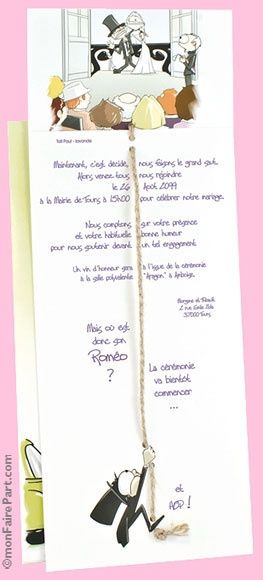 Toit Paul - lavande
Maintenant, c'est décidé, nous faisons le grand saut.
Alors venez tous nous rejoindre
le 26 Août 2099
à la Mairie de Tours à 15h00 pour célébrer notre mariage.
Nous comptons sur votre présence
et votre habituelle bonne humeur
pour nous soutenir devant un tel engagement.
Un vin d'honneur sera à l'issue de la cérémonie
à la salle polyvalente "Aragon" à Amboise.
Morgane et
2 rue Emile Zola
37000 Tours
Mais où est
donc son
Roméo
?
La cérémonie
va bientôt
commencer
...
et
HOP !
©monFairePart.com